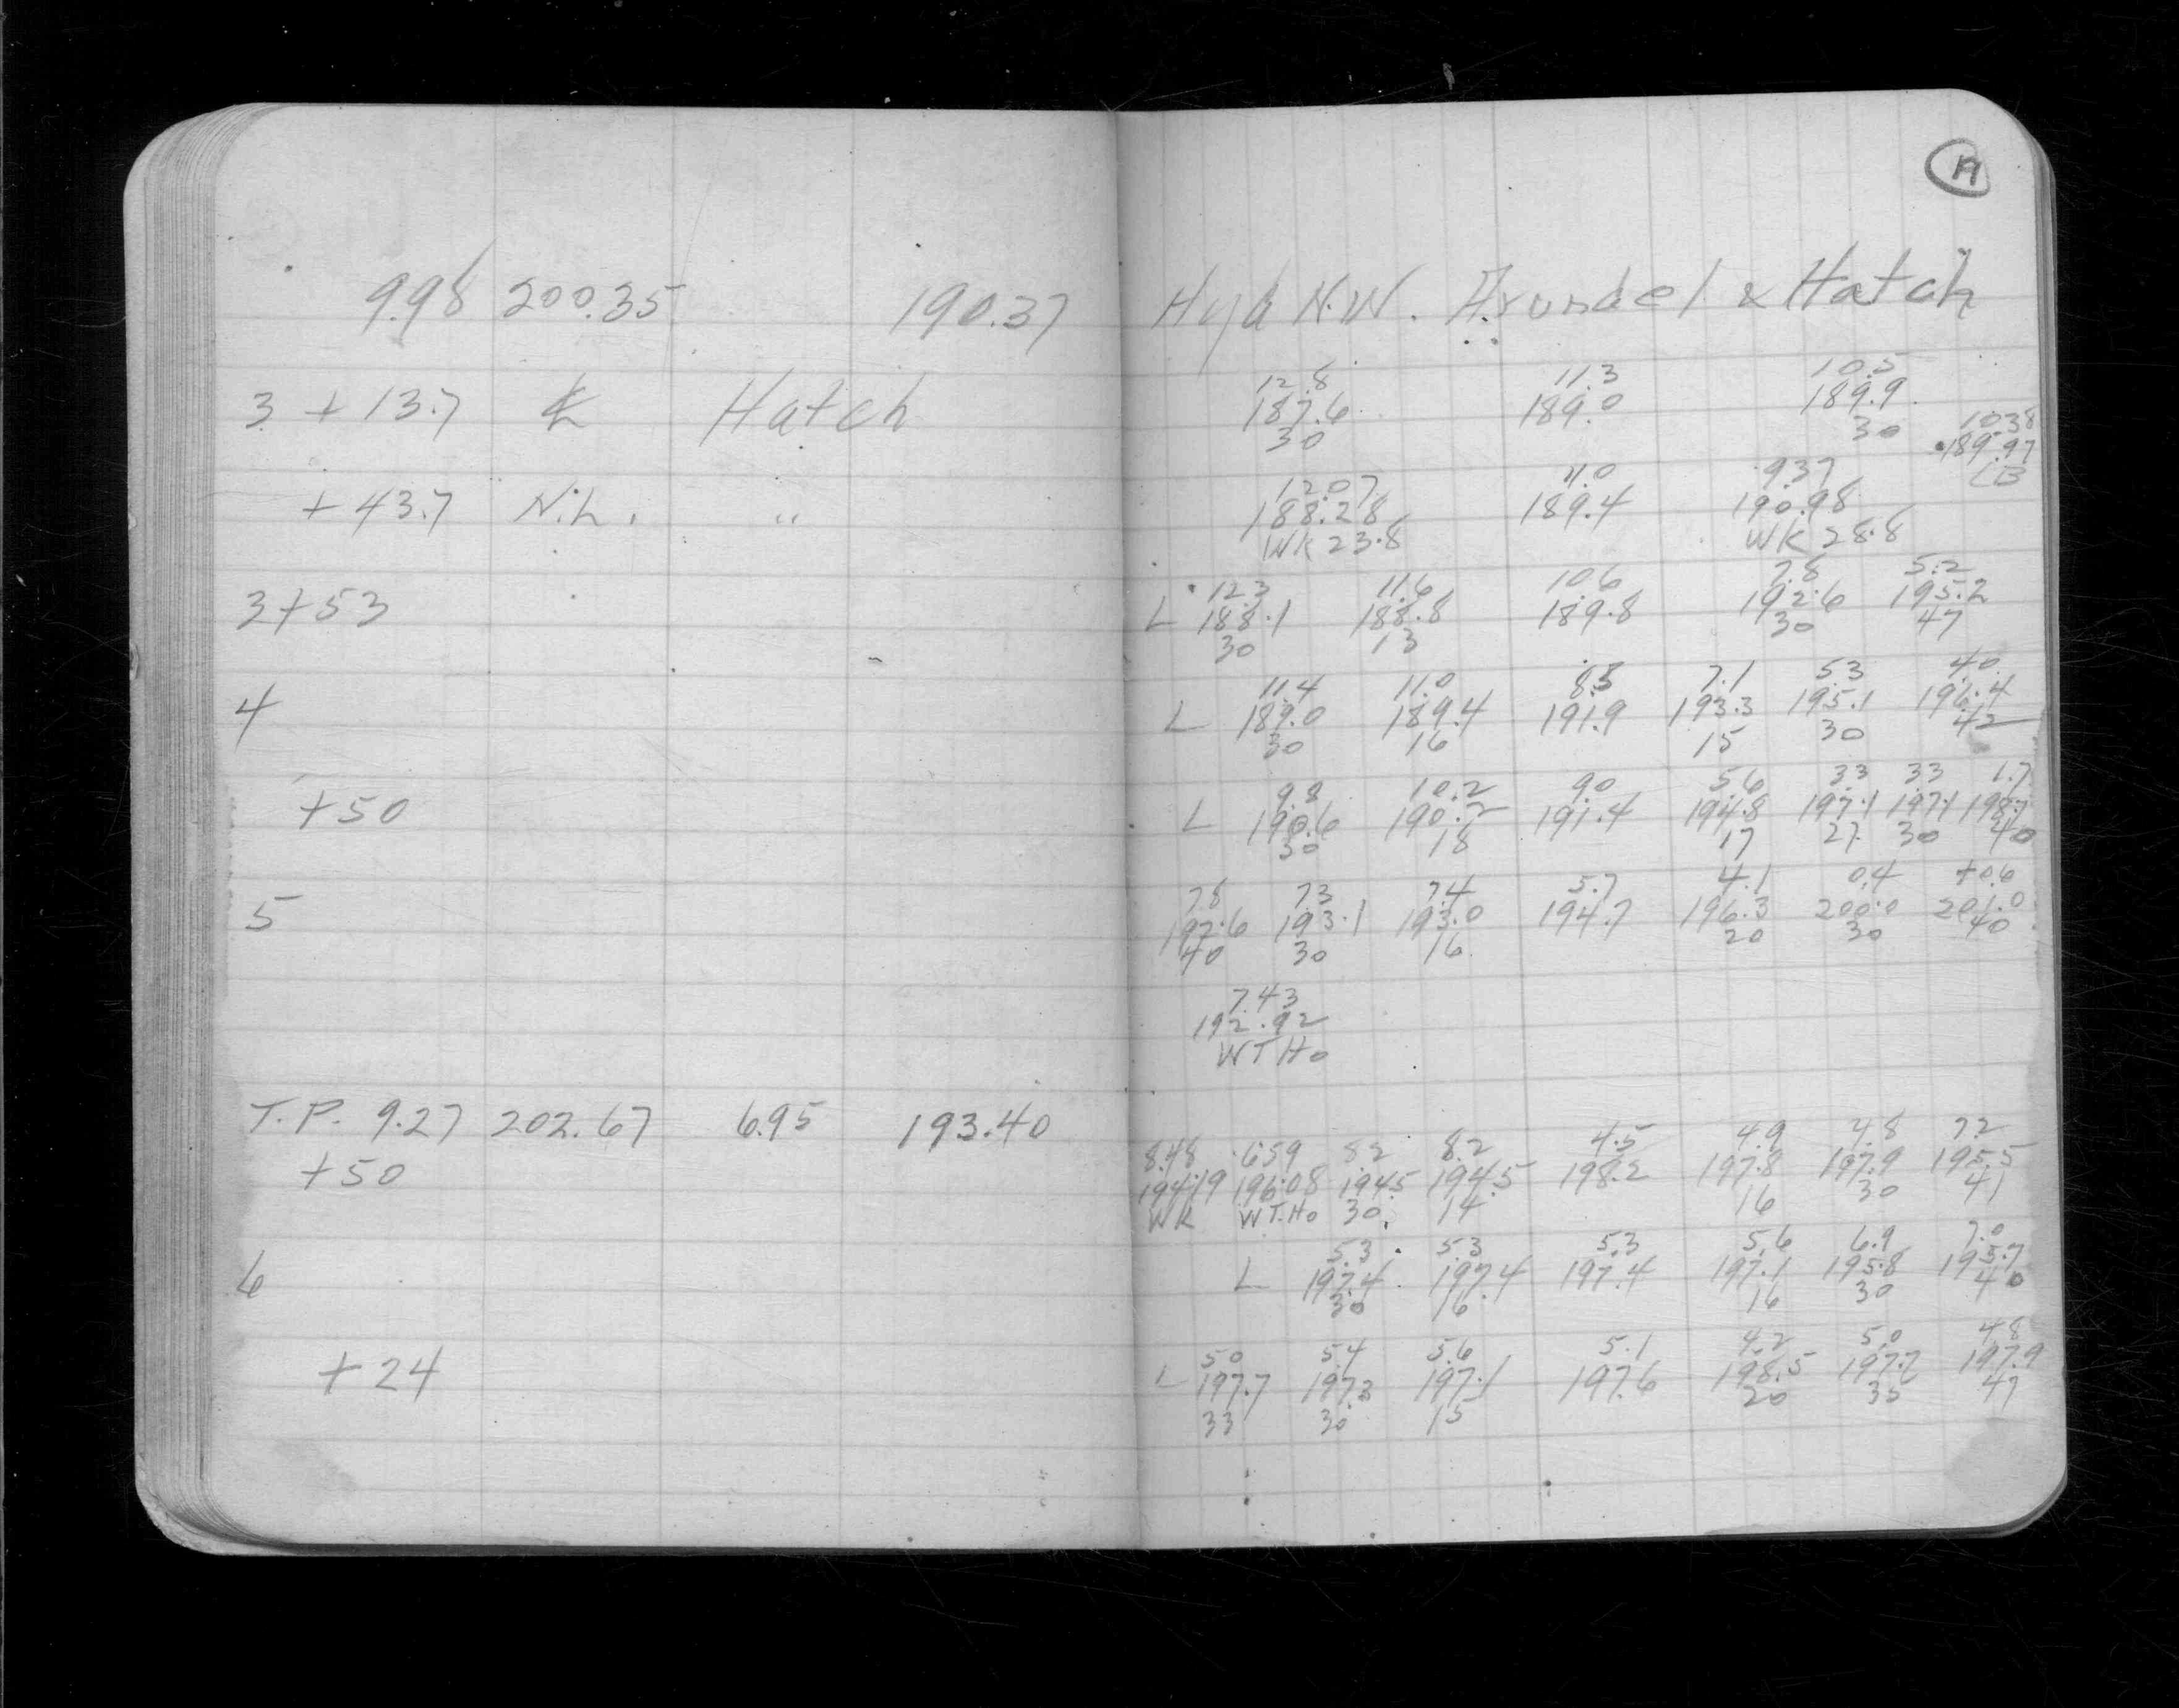 9.98 200.35 190.37
3 + 13.7 ȼ Hatch
+ 43.7 N.L. "
3+53
4
+50
5
T.P. 9.27 202.67 6.95 193.40
+50
6
+ 24
Hyd N.W. Arundel & Hatch
12.8 11.3 10.5
187.6 189.0 189.9
30 30
10.38
189.97
CB
12.07 11.0 9.37
188.28 189.4 190.98
WK 23.8 WK 28.8
12.3 11.6 10.6 7.8 5.2
L 188.1 188.8 189.8 192.6 195.2
30 13 30 47
11.4 11.0 8.5 7.1 5.3 4.0
L 189.0 189.4 191.9 193.3 195.1 196.4
30 16 15 30 42
9.8 10.2 9.0 5.6 3.3 3.3 1.7
L 190.6 190.2 191.4 194.8 197.1 197.1 198.7
30 18 17 27 30 40
7.8 7.3 7.4 5.7 4.1 0.4 +0.6
192.6 193.1 193.0 194.7 196.3 200.0 201.0
40 30 16 20 30 40
7.43
192.92
WT Ho
8.48 6.59 8.2 8.2 4.5 4.9 4.8 7.2
194.19 196.08 194.5 194.5 198.2 197.8 197.9 195.5
WK WT.Ho 30 14 16 30 41
5.3 5.3 5.3 5.6 6.9 7.0
L 197.4 197.4 197.4 197.1 195.8 195.7
30 16 16 30 40
5.0 5.4 5.6 5.1 4.2 5.0 4.8
L 197.7 197.3 197.1 197.6 198.5 197.7 197.9
33 30 15 20 35 47